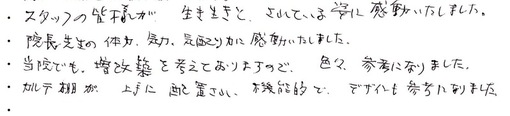 ・スタッフの皆様が 生き生きと、されている姿に感動いたしました。
・院長先生の体力、気力、気配り力に感動いたしました。
・当院でも、増改築を考えておりますので、色々、参考になりました。
・カルテ棚が 上手に配置され、機能的で、デザインも参考になりました
・